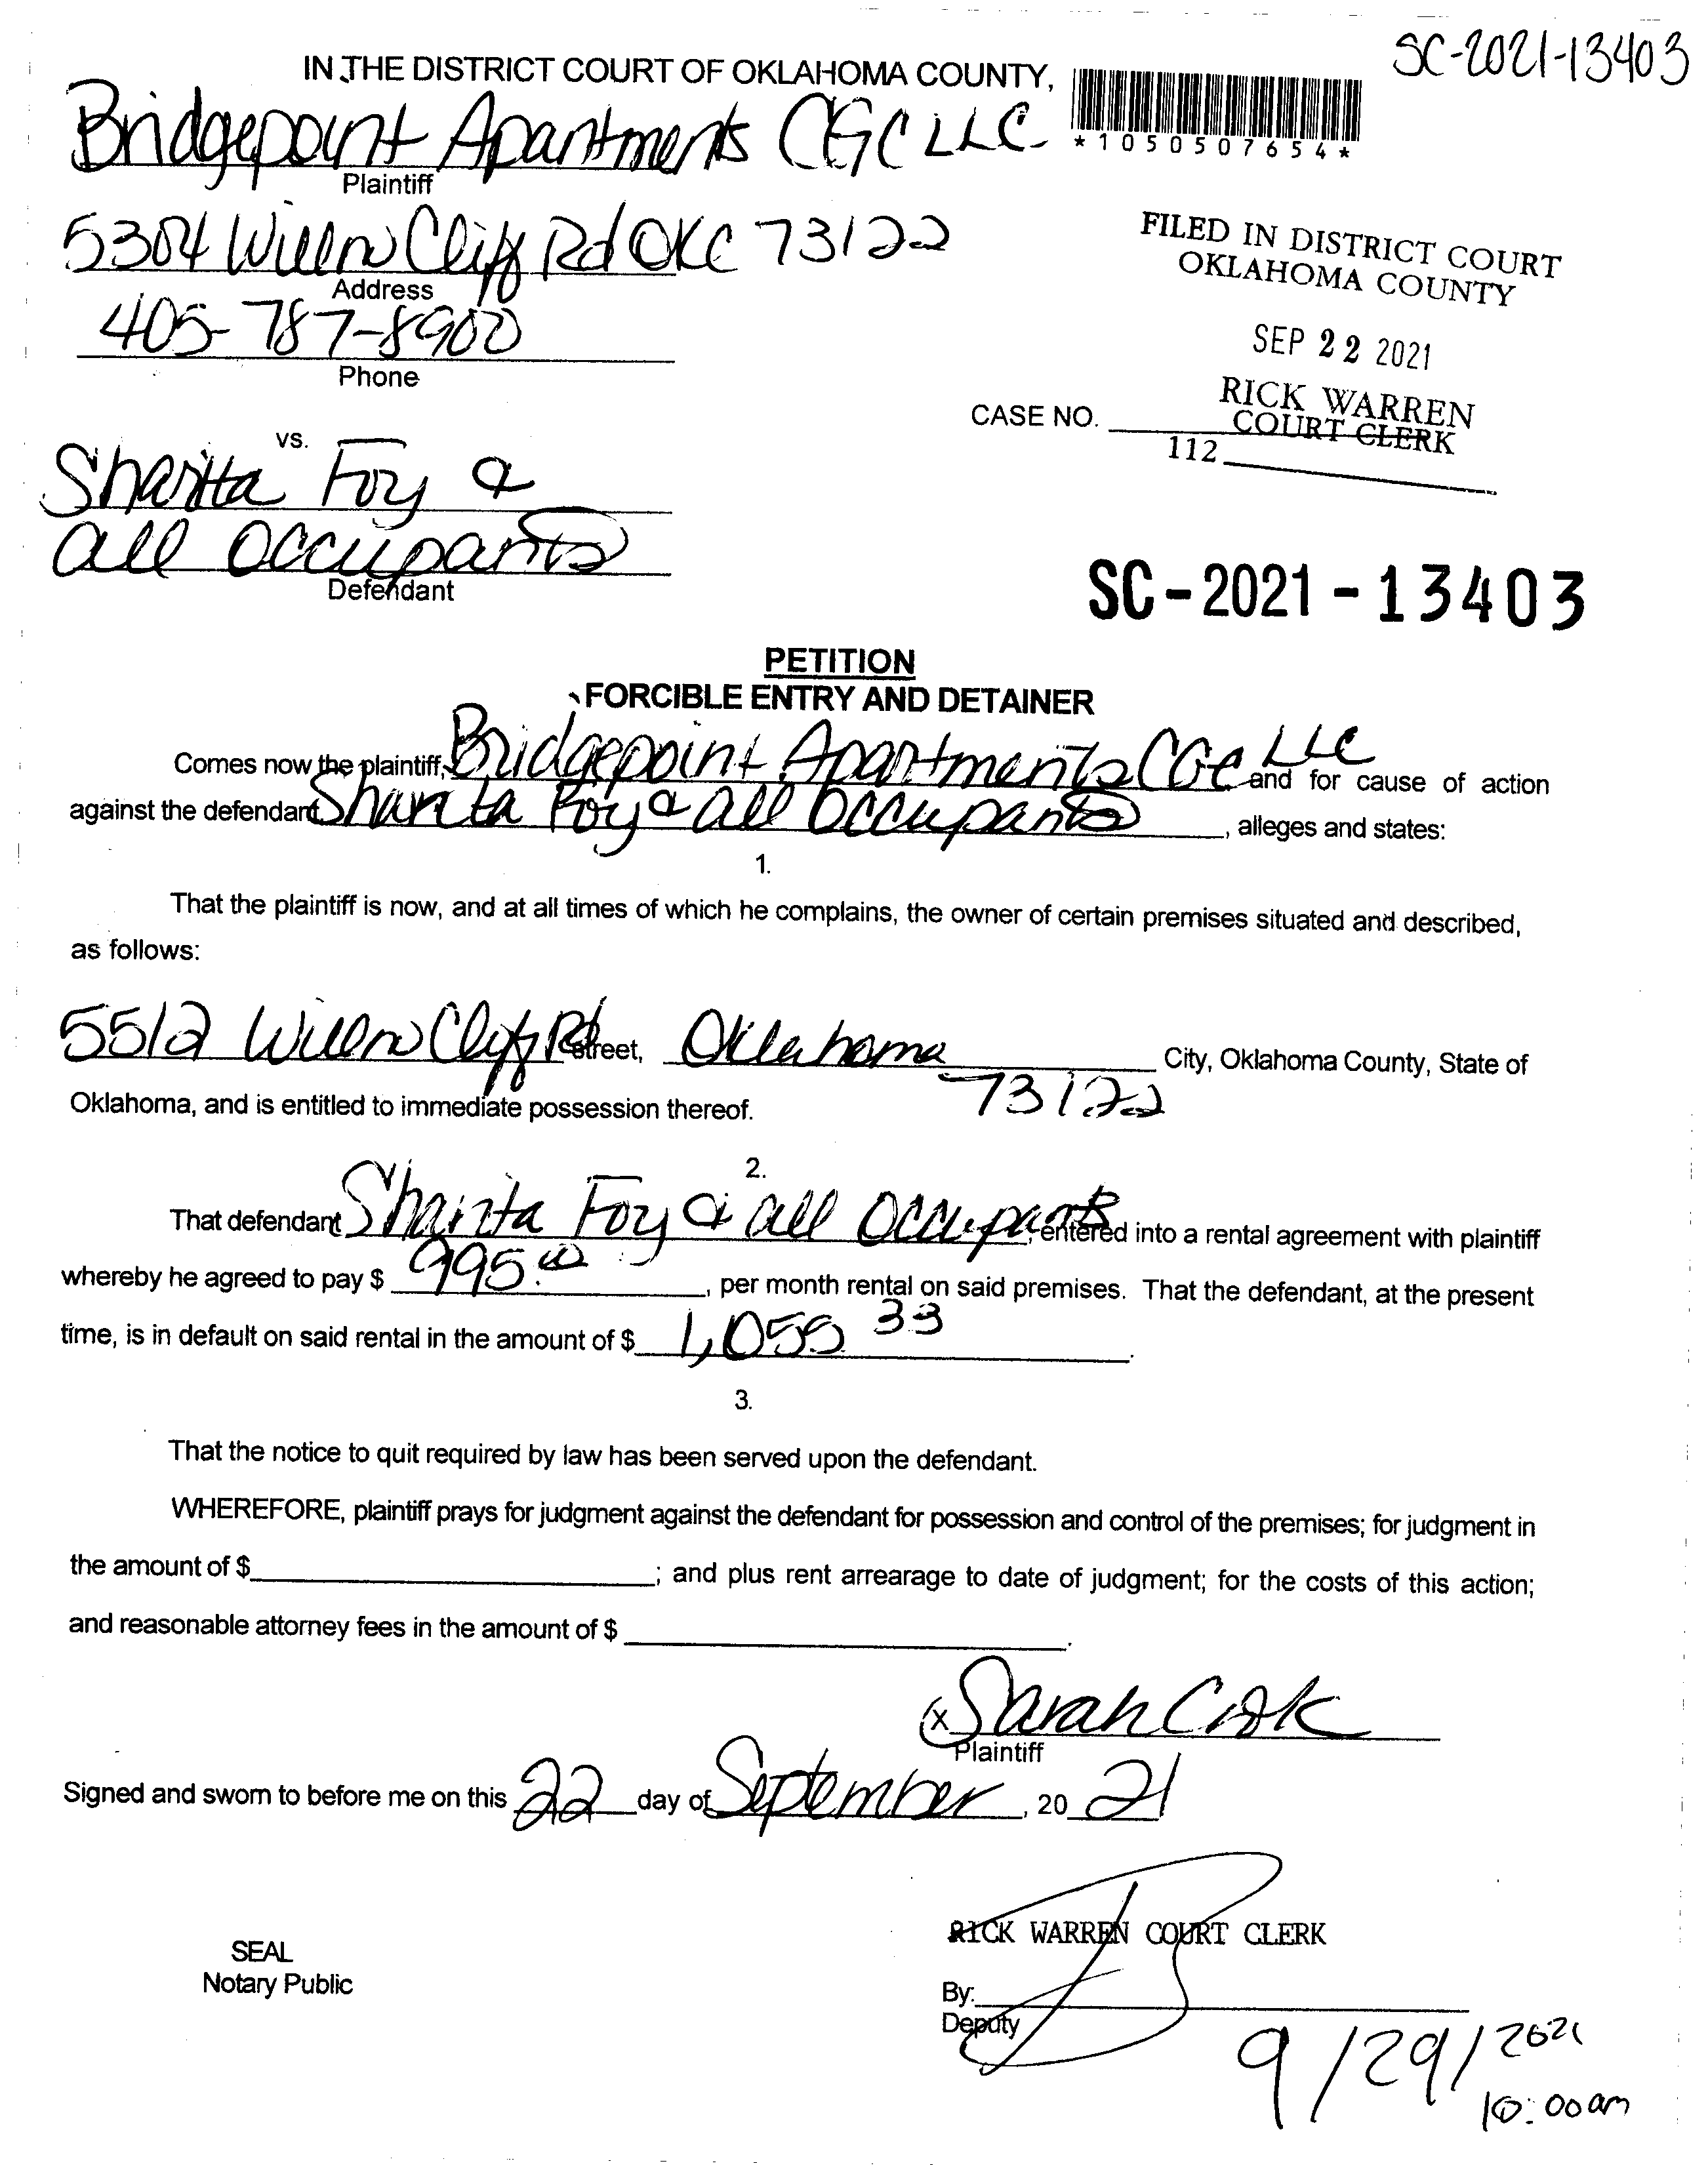 SC-2021-13403
IN THE DISTRICT COURT OF OKLAHOMA COUNTY,
Bridgepoint Apartments CGC LLC
*1050507654*
Plaintiff
5304 Willow Cliff Rd OKC 73122
Address
405-787-8900
Phone
FILED IN DISTRICT COURT
OKLAHOMA COUNTY
SEP 22 2021
RICK WARREN
COURT CLERK
112
CASE NO.
vs.
Sharita Foy &
all occupants
Defendant
SC-2021-13403
PETITION
FORCIBLE ENTRY AND DETAINER
Comes now the plaintiff, Bridgepoint Apartments CGC LLC and for cause of action
against the defendant Sharita Foy & all occupants, alleges and states:
1.
That the plaintiff is now, and at all times of which he complains, the owner of certain premises situated and described,
as follows:
5512 Willow Cliff Rd Street, Oklahoma City, Oklahoma County, State of
73122
Oklahoma, and is entitled to immediate possession thereof.
2.
That defendant Sharita Foy & all occupants, entered into a rental agreement with plaintiff
whereby he agreed to pay $ 995.00, per month rental on said premises. That the defendant, at the present
time, is in default on said rental in the amount of $ 1,055 33.
3.
That the notice to quit required by law has been served upon the defendant.
WHEREFORE, plaintiff prays for judgment against the defendant for possession and control of the premises; for judgment in
the amount of $ ; and plus rent arrearage to date of judgment; for the costs of this action;
and reasonable attorney fees in the amount of $ .
x Sarah Cook
Plaintiff
Signed and sworn to before me on this 22 day of September, 2021
RICK WARREN COURT CLERK
SEAL
Notary Public
By:
Deputy
9/29/2021
10:00am